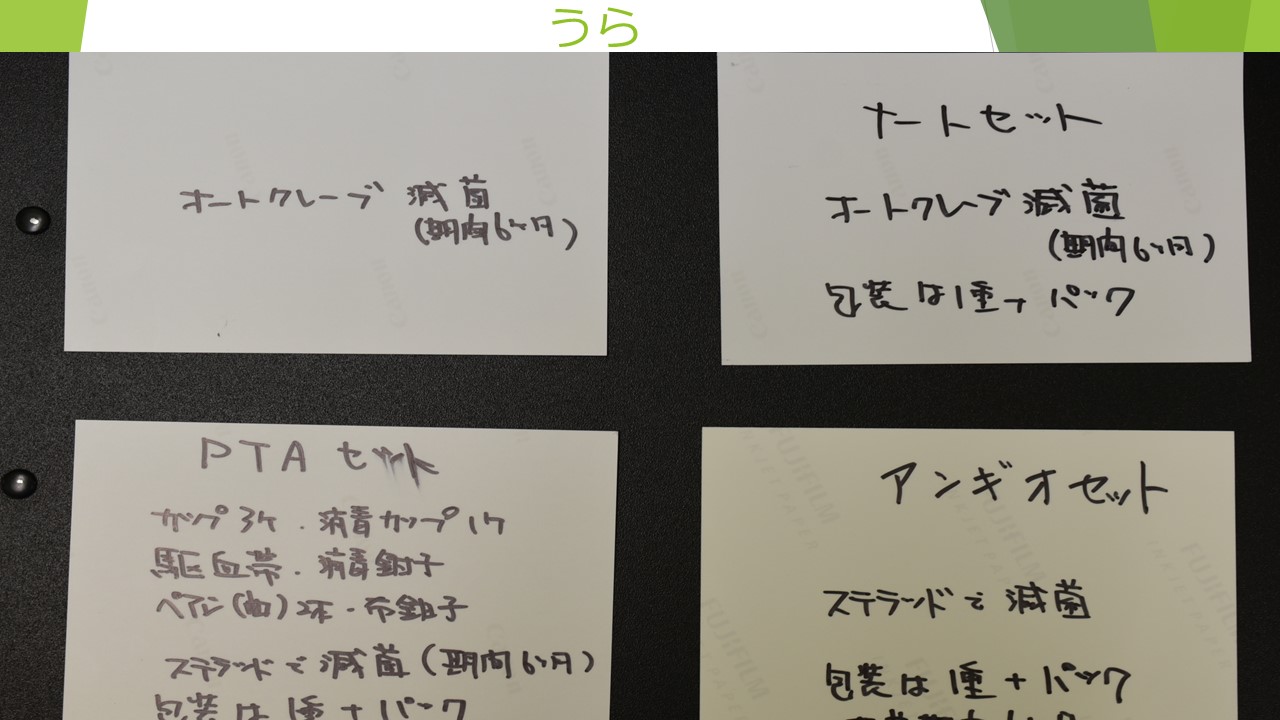 うら
オートクレーブ 滅菌
(期間6ヶ月)
ナートセット
オートクレーブ滅菌
(期間6ヶ月)
包装は1重+パック
PTAセット
カップ3ケ・消毒カップ1ケ
駆血帯・消毒鉗子
ペアン(曲)2本・布鉗子
ステラッドで滅菌(期間6ヶ月)
包装は1重+パック
アンギオセット
ステラッドで滅菌
包装は1重+パック